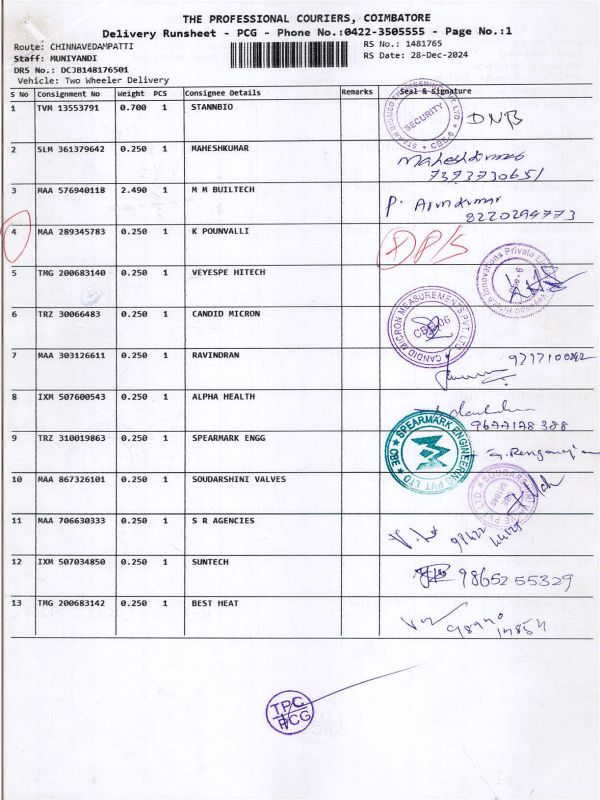 THE PROFESSIONAL COURIERS, COIMBATORE
Delivery Runsheet - PCG - Phone No.:0422-3505555 - Page No.:1
Route: CHINNAVEDAMPATTI
RS No.: 1481765
Staff: MUNIYANDI
RS Date: 28-Dec-2024
DRS No.: DCJB148176501
Vehicle: Two Wheeler Delivery
S No Consignment No Weight PCS Consignee Details Remarks Seal & Signature
1 TVM 13553791 0.700 1 STANNBIO
SECURITY
DNB
2 SLM 361379642 0.250 1 MAHESHKUMAR
7373730651
3 MAA 576940118 2.490 1 M M BUILTECH
P.
8220294773
4 MAA 289345783 0.250 1 K POUNVALLI
5 TMG 200683140 0.250 1 VEYESPE HITECH
6 TRZ 30066483 0.250 1 CANDID MICRON
CANDID MICRON MEASUREMENTS PVT. LTD
7 MAA 303126611 0.250 1 RAVINDRAN
8 IXM 507600543 0.250 1 ALPHA HEALTH
9677178388
9 TRZ 310019863 0.250 1 SPEARMARK ENGG
SPEARMARK ENGINEERING PVT LTD
10 MAA 867326101 0.250 1 SOUDARSHINI VALVES
11 MAA 706630333 0.250 1 S R AGENCIES
12 IXM 507034850 0.250 1 SUNTECH
9865255329
13 TMG 200683142 0.250 1 BEST HEAT
TPC
PCG